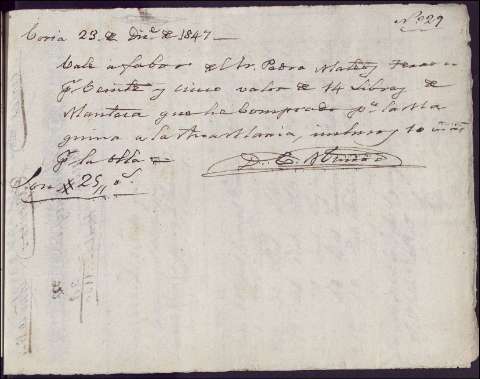 Nº 29
Coria 23 de Dic.e de 1847
Vale a fabor del Sr. Pedro Mateo
Veinte y cinco valor de 14 libras de
Manteca que he Comprado pa la Ma
quina a la Sra Maria, incluso 10
pr la olla
Son 25,, r.s